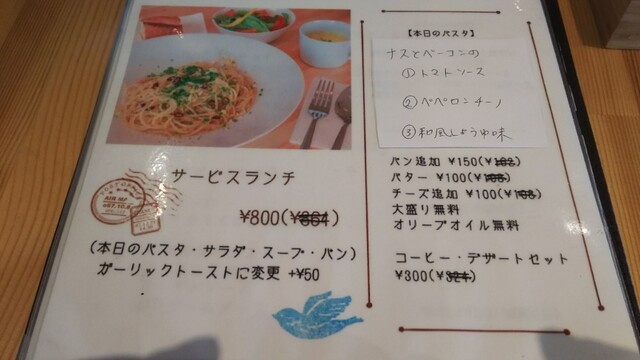 サービスランチ
¥800(¥864)
(本日のパスタ・サラダ・スープ・パン)
ガーリックトーストに変更 +¥50
【本日のパスタ】
ナスとベーコンの
①トマトソース
②ペペロンチーノ
③和風しょうゆ味
パン追加 ¥150(¥162)
バター ¥100(¥108)
チーズ追加 ¥100(¥108)
大盛り無料
オリーブオイル無料
コーヒー・デザートセット
¥300(¥324)